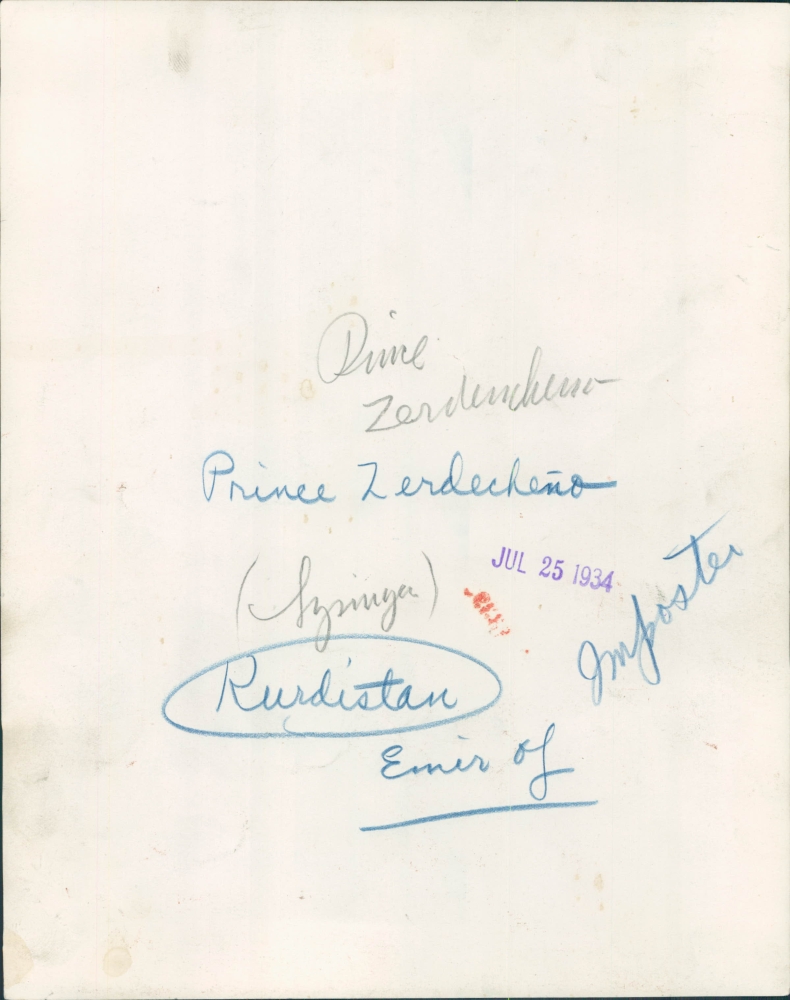 Prince
Zerdecheno
Prince Zerdecheno
JUL 25 1934
Imposter
Kurdistan
Emir of